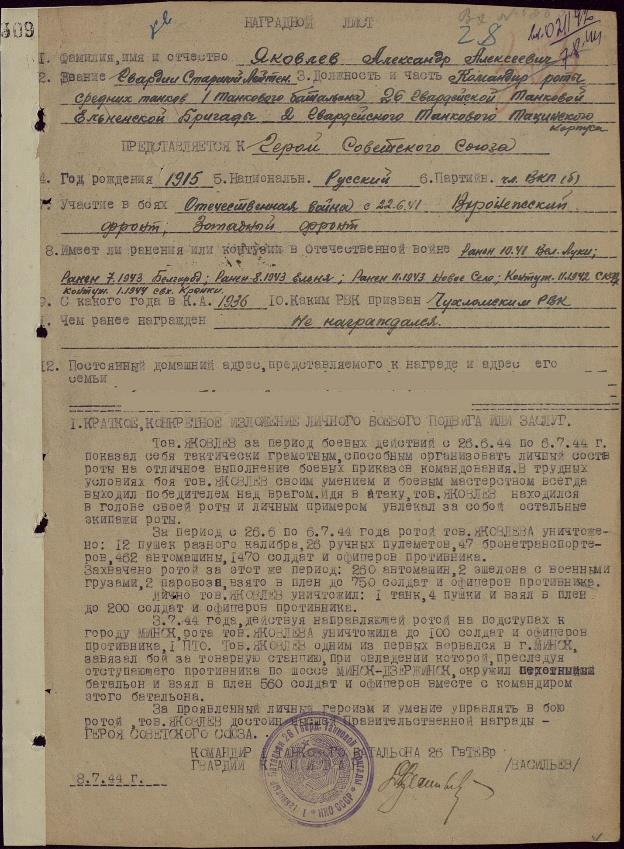 309
НАГРАДНОЙ ЛИСТ
28
1. Фамилия,имя и отчество Яковлев Александр Алексеевич
2. Звание Гвардии Старший Лейтен. 3. Должность и часть Командир роты
средних танков 1 Танкового батальона 26 Гвардейской Танковой
Ельненской Бригады 2 Гвардейского Танкового Тацинского
корпуса
ПРЕДСТАВЛЯЕТСЯ К Герой Советского Союза
4. Год рождения 1915 5. Национальн. Русский 6. Партийн. чл. ВКП(б)
7. Участие в боях Отечественная война с 22.6.41 Воронежский
фронт, Западный фронт
8. Имеет ли ранения или контузии в Отечественной войне Ранен 10.41 Вел. Луки;
Ранен 7.1943 Белгород; Ранен 8.1943 Ельня; Ранен 11.1943 Новое Село; Контуж. 11.1942
контуж. 1.1944 свх.
9. С какого года в К.А. 1936 10. Каким РВК призван Чухломским РВК
11. Чем ранее награжден Не награждался.
12. Постоянный домашний адрес,представляемого к награде и адрес его
семьи
I. КРАТКОЕ,КОНКРЕТНОЕ ИЗЛОЖЕНИЕ ЛИЧНОГО БОЕВОГО ПОДВИГА ИЛИ ЗАСЛУГ.
Тов. ЯКОВЛЕВ за период боевых действий с 26.6.44 по 6.7.44 г.
показал себя тактически грамотным,способным организовать личный состав
роты на отличное выполнение боевых приказов командования. В трудных
условиях боя тов. ЯКОВЛЕВ своим умением и боевым мастерством всегда
выходил победителем над врагом. Идя в атаку, тов. ЯКОВЛЕВ находился
в голове своей роты и личным примером увлекал за собой остальные
экипажи роты.
За период с 26.6 по 6.7.44 года ротой тов. ЯКОВЛЕВА уничтоже-
но: 12 пушек разного калибра, 26 ручных пулеметов, 47 бронетранспорте-
ров, 462 автомашины, 1470 солдат и офицеров противника.
Захвачено ротой за этот же период: 260 автомашин, 2 эшелона с военными
грузами, 2 паровоза, взято в плен до 750 солдат и офицеров противника.
Лично тов. ЯКОВЛЕВ уничтожил: 1 танк, 4 пушки и взял в плен
до 200 солдат и офицеров противника.
3.7.44 года, действуя направляющей ротой на подступах к
городу МИНСК, рота тов. ЯКОВЛЕВА уничтожила до 100 солдат и офицеров
противника, 1 ПТО. Тов. ЯКОВЛЕВ одним из первых ворвался в г. МИНСК,
завязал бой за товарную станцию, при овладении которой, преследуя
отступающего противника по шоссе МИНСК-ДЗЕРЖИНСК, окружил пехотный
батальон и взял в плен 560 солдат и офицеров вместе с командиром
этого батальона.
За проявленный личный героизм и умение управлять в бою
ротой, тов. ЯКОВЛЕВ достоин высшей Правительственной награды -
ГЕРОЯ СОВЕТСКОГО СОЮЗА.
КОМАНДИР 1 ТАНКОВОГО БАТАЛЬОНА 26 ГвТЕбр
ГВАРДИИ КАПИТАН /ВАСИЛЬЕВ/
8.7.44 г.